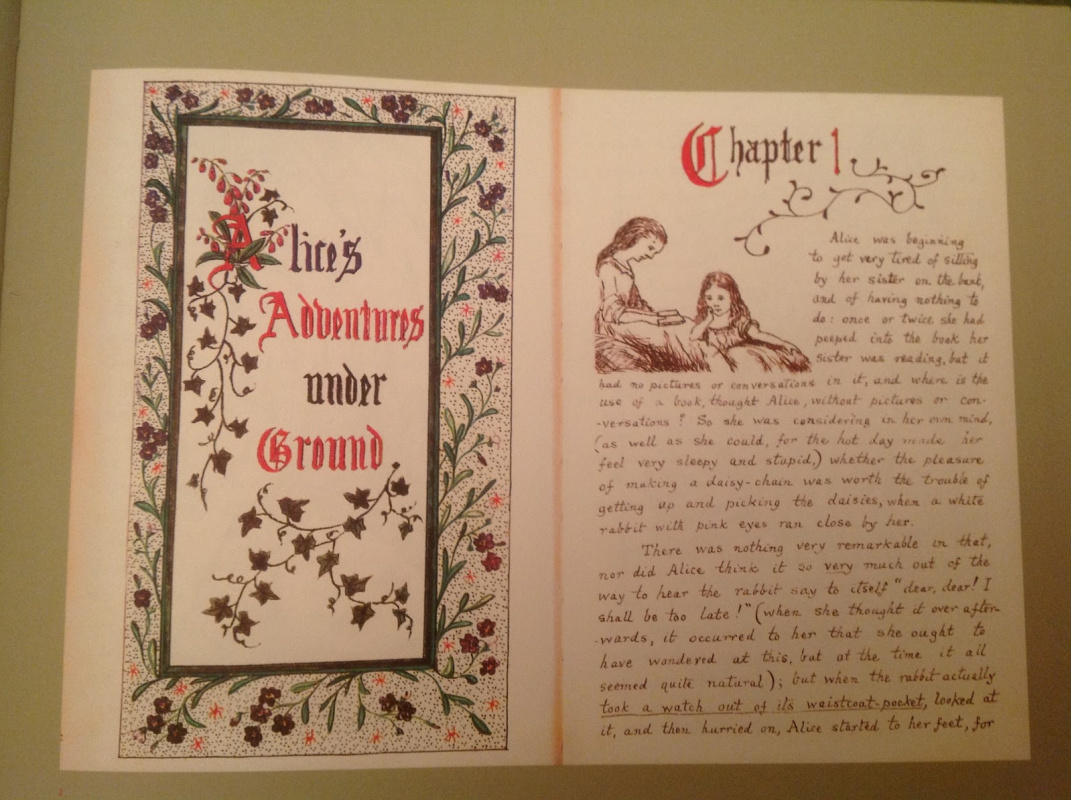 Alice's
Adventures
under
Ground
Chapter 1
Alice was beginning
to get very tired of sitting
by her sister on the bank,
and of having nothing to
do: once or twice she had
peeped into the book her
sister was reading, but it
had no pictures or conversations in it, and where is the
use of a book, thought Alice, without pictures or con-
-versations? So she was considering in her own mind,
(as well as she could, for the hot day made her
feel very sleepy and stupid,) whether the pleasure
of making a daisy-chain was worth the trouble of
getting up and picking the daisies, when a white
rabbit with pink eyes ran close by her.
There was nothing very remarkable in that,
nor did Alice think it so very much out of the
way to hear the rabbit say to itself "dear, dear! I
shall be too late!" (when she thought it over after-
-wards, it occurred to her that she ought to
have wondered at this, but at the time it all
seemed quite natural); but when the rabbit actually
took a watch out of its waistcoat-pocket, looked at
it, and then hurried on, Alice started to her feet, for